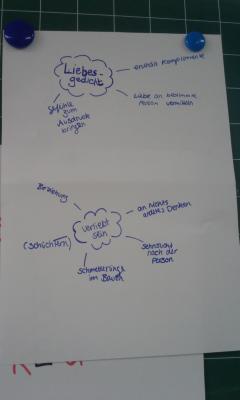 Liebes-
gedicht
enthält Komplimente
Liebe an bestimmte
Person vermitteln
Gefühle
zum
Ausdruck
bringen
Beziehung
an nichts
anderes Denken
verliebt
sein
(schüchtern)
Sehnsucht
nach der
Person
Schmetterlinge
im Bauch